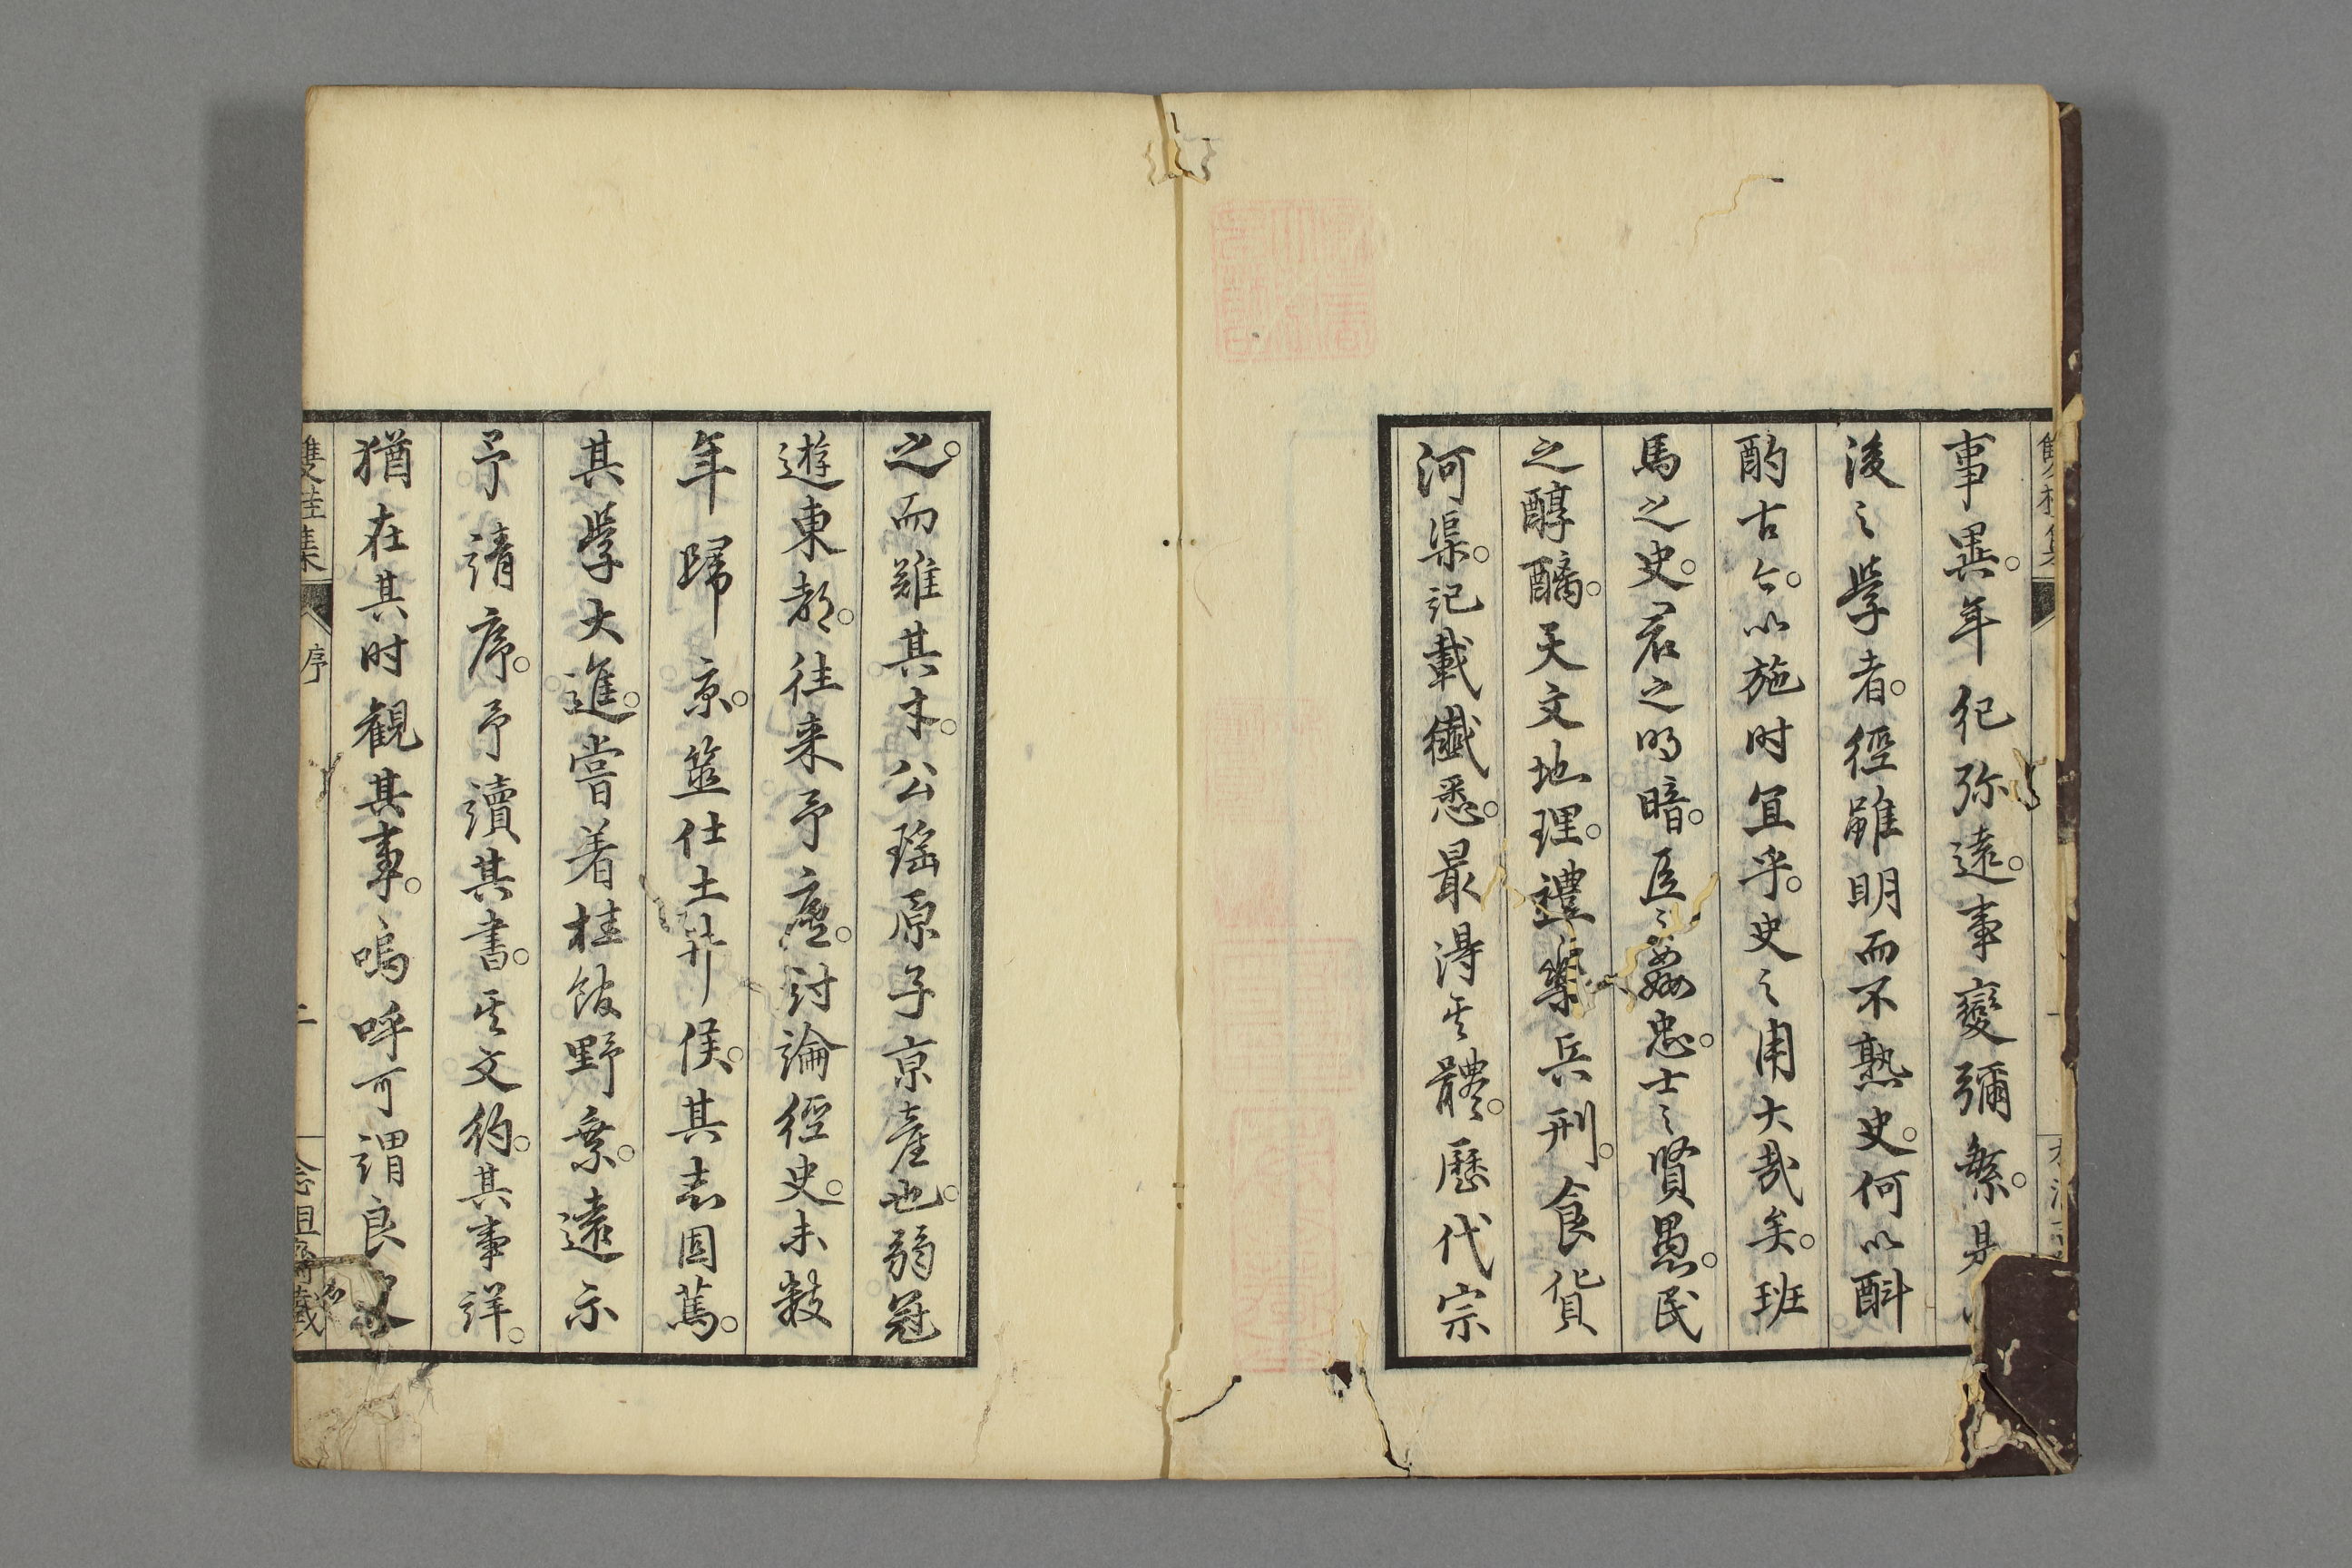 事異。年紀弥遠。事變彌繁。是
後之學者。經雖明而不熟史。何以斟
酌古今。以施时宜乎。史之用大哉矣。班
馬之史。君之明暗。臣之姦忠。士之賢愚。民
之醇醨。天文地理。禮樂兵刑。食貨
河渠。記載纖悉。最得其體。歷代宗
之。而難其才。公瑤原子京産也。弱冠
遊東都。往来予廬。討論經史。未数
年歸京。筮仕土井侯。其志固篤。
其學大進。嘗着桂館野乗。遠示
予請序。予讀其書。其文約。其事詳。
猶在其时觀其事。嗚呼可謂良史
雙桂集
序
二